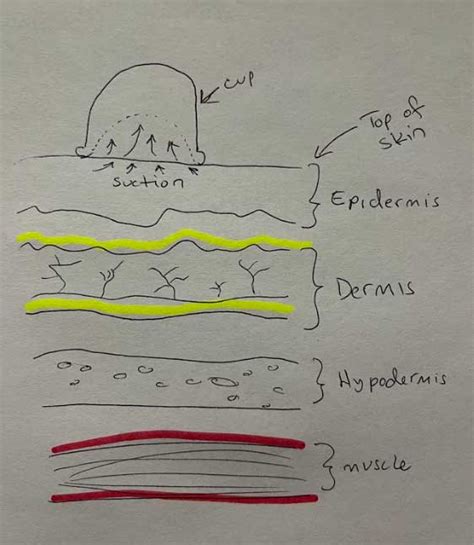 cup
Top of
skin
suction
Epidermis
Dermis
Hypodermis
muscle